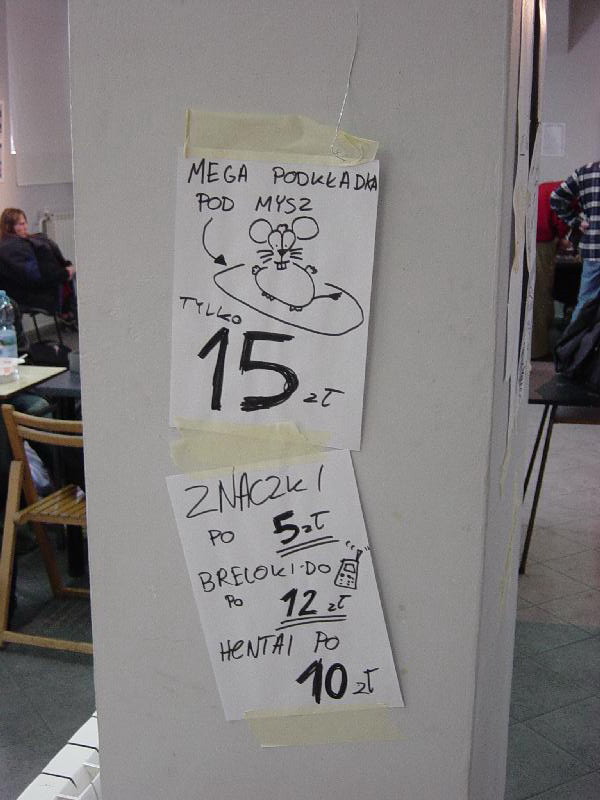 MEGA PODKŁADKA
POD MYSZ
TYLKO
15 zł
ZNACZKI
PO 5 zł
BRELOKI·DO
PO 12 zł
HENTAI PO
10 zł